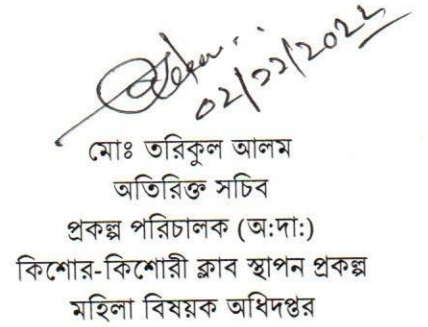 মোঃ তরিকুল আলম
অতিরিক্ত সচিব
প্রকল্প পরিচালক (অ:দা:)
কিশোর-কিশোরী ক্লাব স্থাপন প্রকল্প
মহিলা বিষয়ক অধিদপ্তর